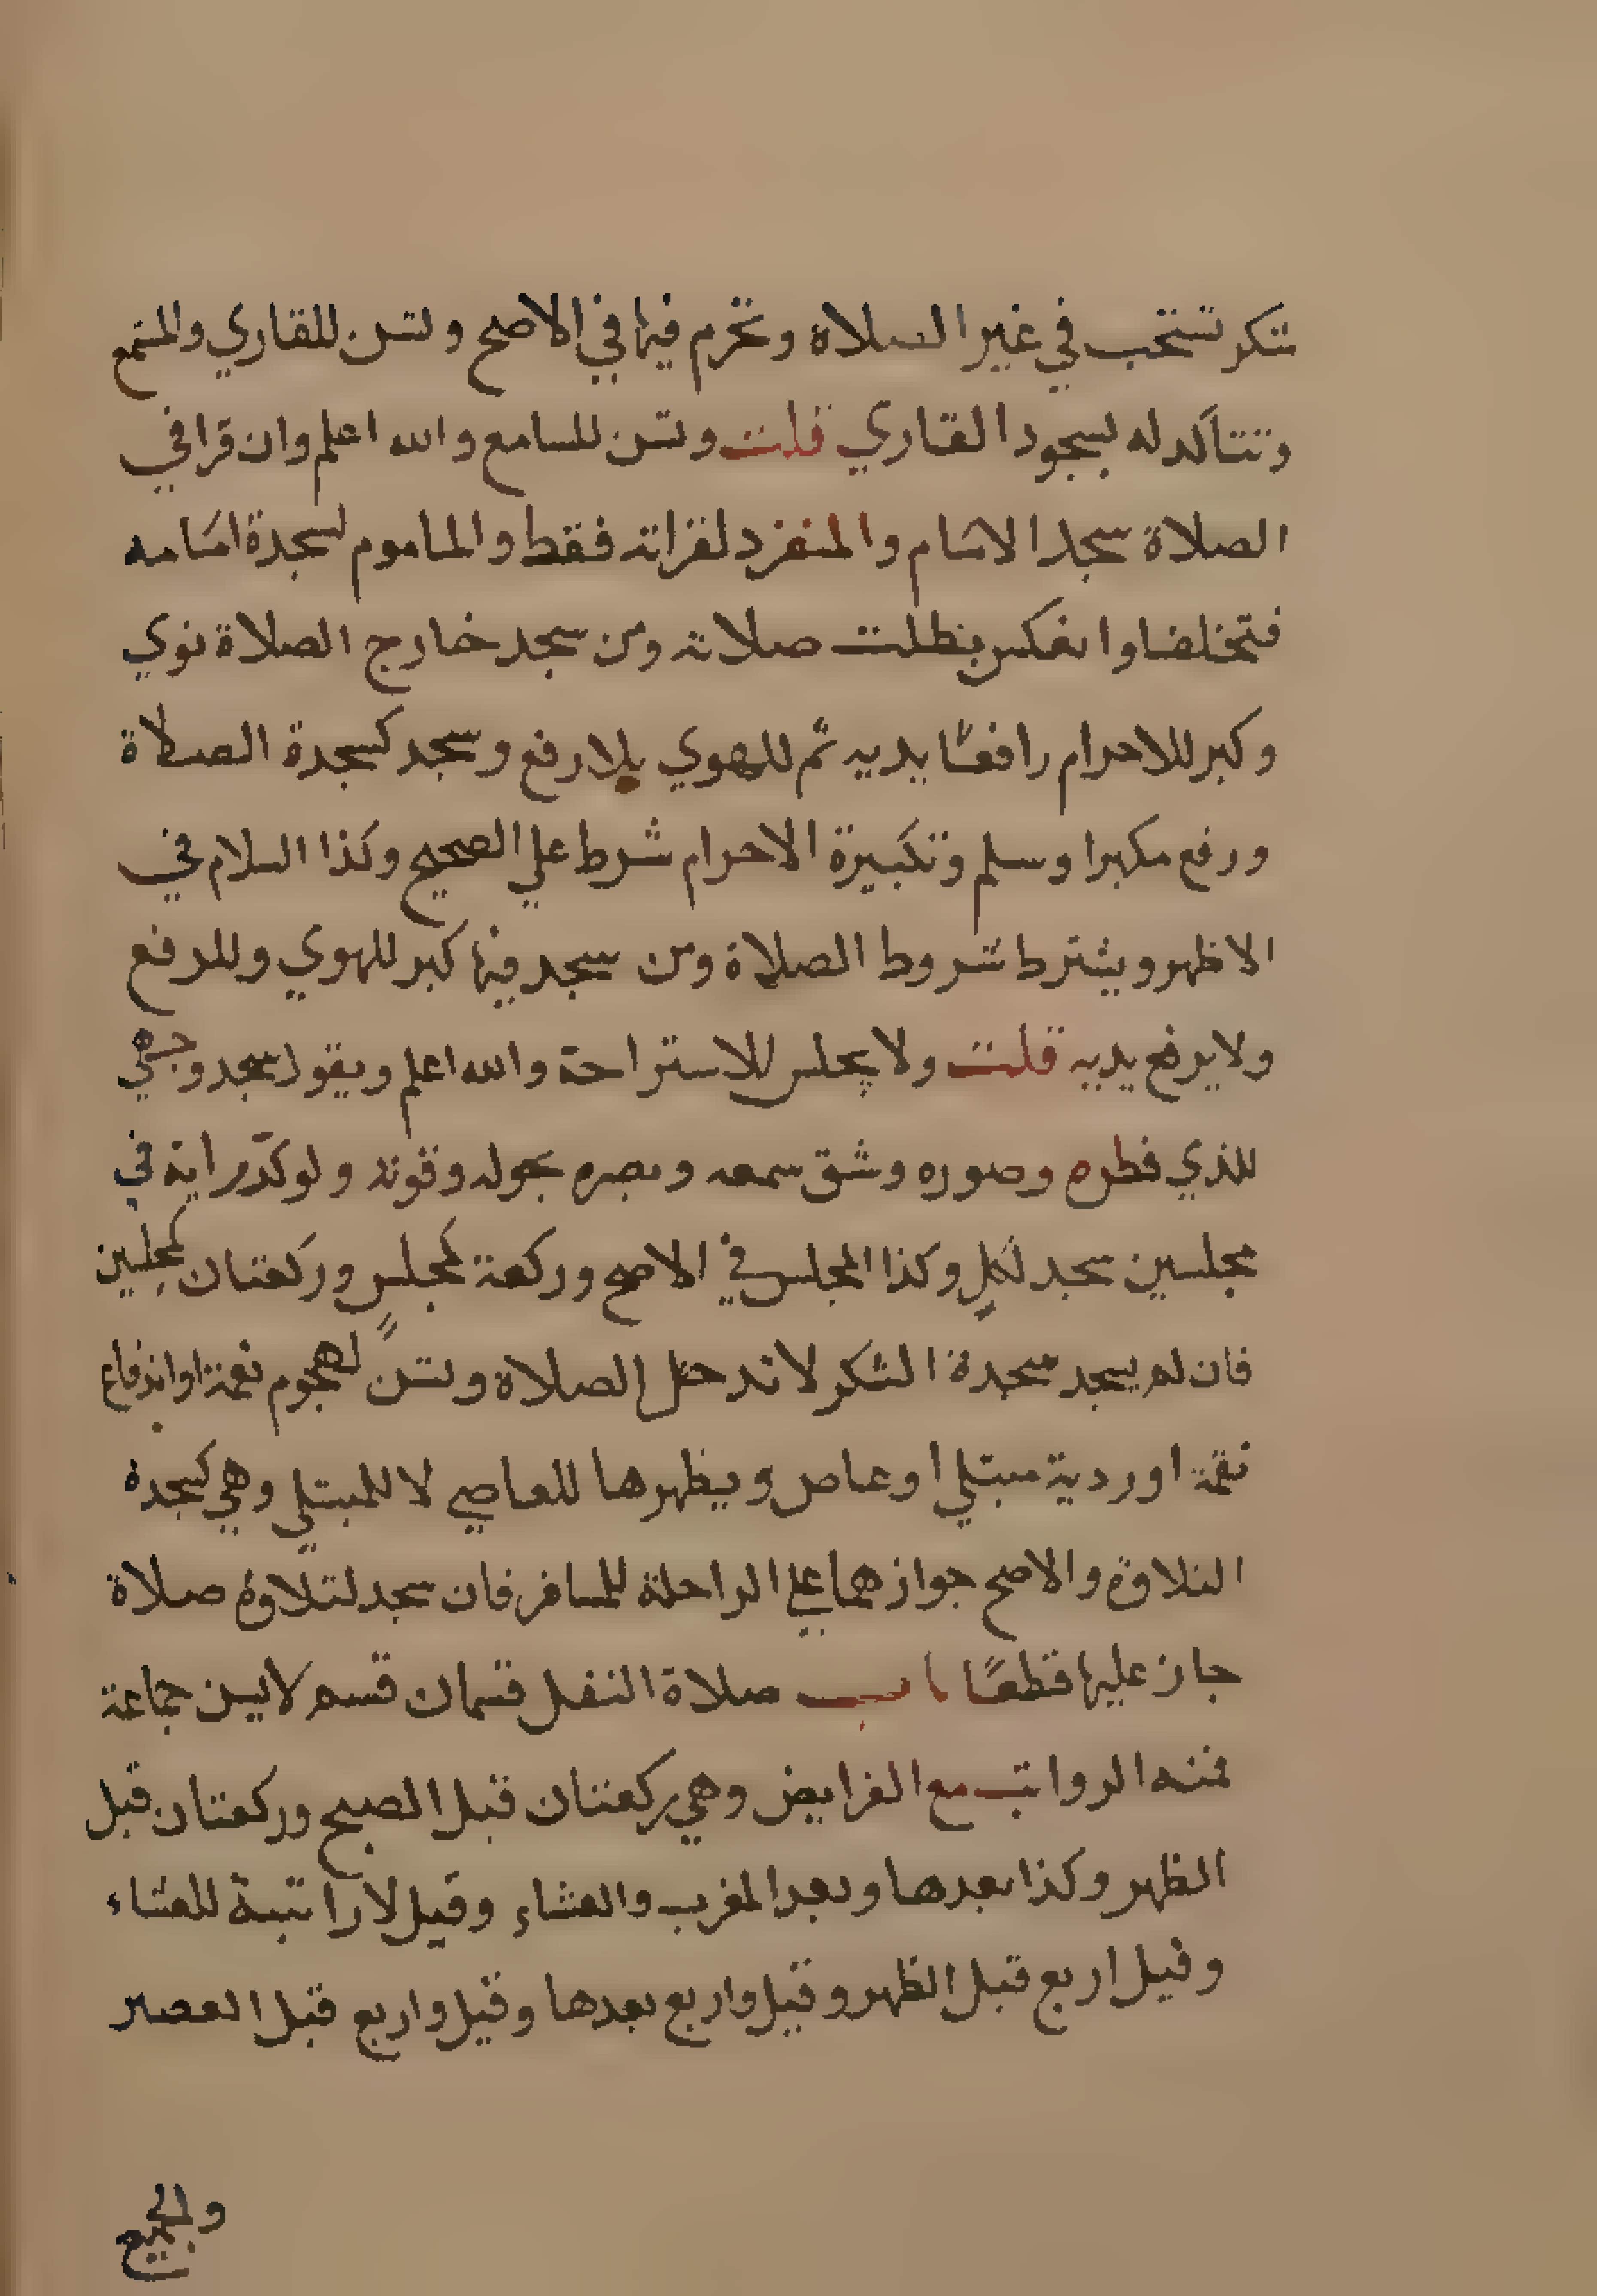 شكر تستحب في غير الصلاة وتحرم فيها في الاصح وتسن للقاري والمستمع
وتتاكد له بسجود القاري قلت وتسن للسامع والله اعلم وان قرا في
الصلاة سجد الامام والمنفرد لقراته فقط والماموم لسجدة امامه
فتخلف او انعكس بطلت صلاته ومن سجد خارج الصلاة نوي
وكبر للاحرام رافعًا يديه ثم للهوي بلا رفع وسجد كسجدة الصلاة
ورفع مكبرا وسلم وتكبيرة الاحرام شرط علي الصحيح وكذا السلام في
الاظهر ويشترط شروط الصلاة ومن سجد فيها كبر للهوي وللرفع
ولا يرفع يديه قلت ولا يجلس للاستراحة والله اعلم ويقول سجد وجهي
للذي فطره وصوره وشق سمعه وبصره بحوله وقوته ولو كرّر اية في
مجلسين سجد لكلٍ وكذا المجلس في الاصح وركعة كمجلسٍ وركعتان كمجلسين
فان لم يسجد سجدة الشكر لا تدخل الصلاة وتسن لهجوم نعمة او اندفاع
نقمة او روية مبتلي او عاص ويظهرها للعاصي لا للمبتلي وهي كسجدة
التلاوة والاصح جوازهما علي الراحلة للمسافر فان سجد لتلاوة صلاة
جاز عليها قطعًا باب صلاة النفل قسمان قسم لا يسن جماعة
فمنه الرواتب مع الفرايض وهي ركعتان قبل الصبح وركعتان قبل
الظهر وكذا بعدها وبعد المغرب والعشاء وقيل لا راتبة للعشاء
وقيل اربع قبل الظهر وقيل واربع بعدها وقيل واربع قبل العصر
والجميع